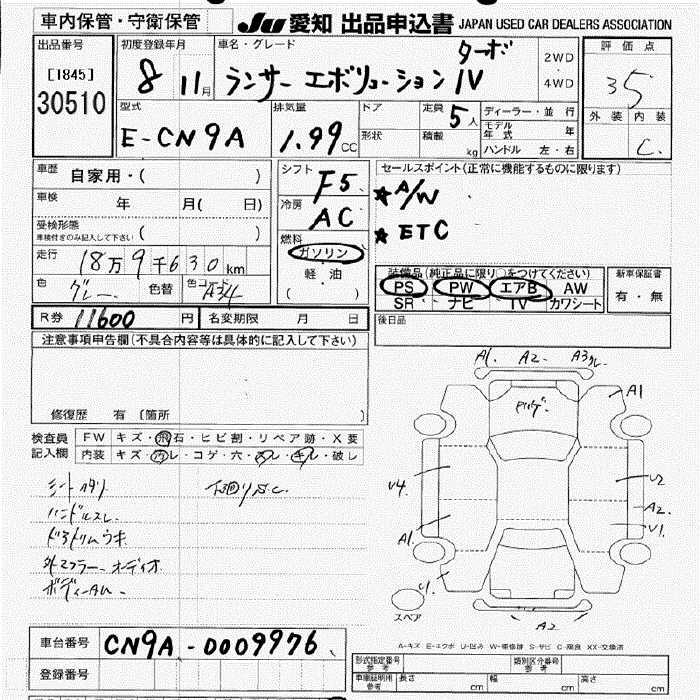 車内保管・守衛保管 JU 愛知 出品申込書 JAPAN USED CAR DEALERS ASSOCIATION
出品番号
[1845]
30510
初度登録年月
8 11月
車名・グレード
ターボ
ランサーエボリューションIV
2WD
4WD
評価点
35
外装 内装
C
型式
E-CN9A
排気量
1.99 CC
ドア
形状
定員 5人
積載 kg
ディーラー・並行
モデル年式 年
ハンドル 左・右
車歴
自家用・( )
車検 年 月( 日)
受検形態
車検付きのみ記入して下さい ( )
走行 18万9千630km
色 グレー 色替 色コード A34
シフト F5
冷房 AC
燃料
ガソリン
軽・油
( )
セールスポイント(正常に機能するものに限ります)
★ A/W
★ ETC
装備品(純正品に限り○をつけてください)
PS PW エアB AW
SR ナビ TV カワシート
新車保証書
有・無
後日品
R券 11600 円 名変期限 月 日
注意事項申告欄(不具合内容等は具体的に記入して下さい)
修復歴 有 [箇所 ]
検査員
記入欄
FW キズ・飛石・ヒビ割・リペア跡・X要
内装 キズ・スレ・コゲ・穴・ヌレ・キレ・破レ
シートヘタリ
ハンドルスレ
ドアトリムウキ
外マフラー オーディオ
下廻りS.C.
A1. A2. A3
A1
U4
U2
A2
U1
A1
U1
A2
スペア
A-キズ E-エクボ U-凹み W-補修跡 S-サビ C-腐食 XX-交換済
車台番号 CN9A-0009976
登録番号
型式指定番号
参考
類別区分番号
参考
車庫証明用
参考
長さ cm 幅 cm 高さ cm